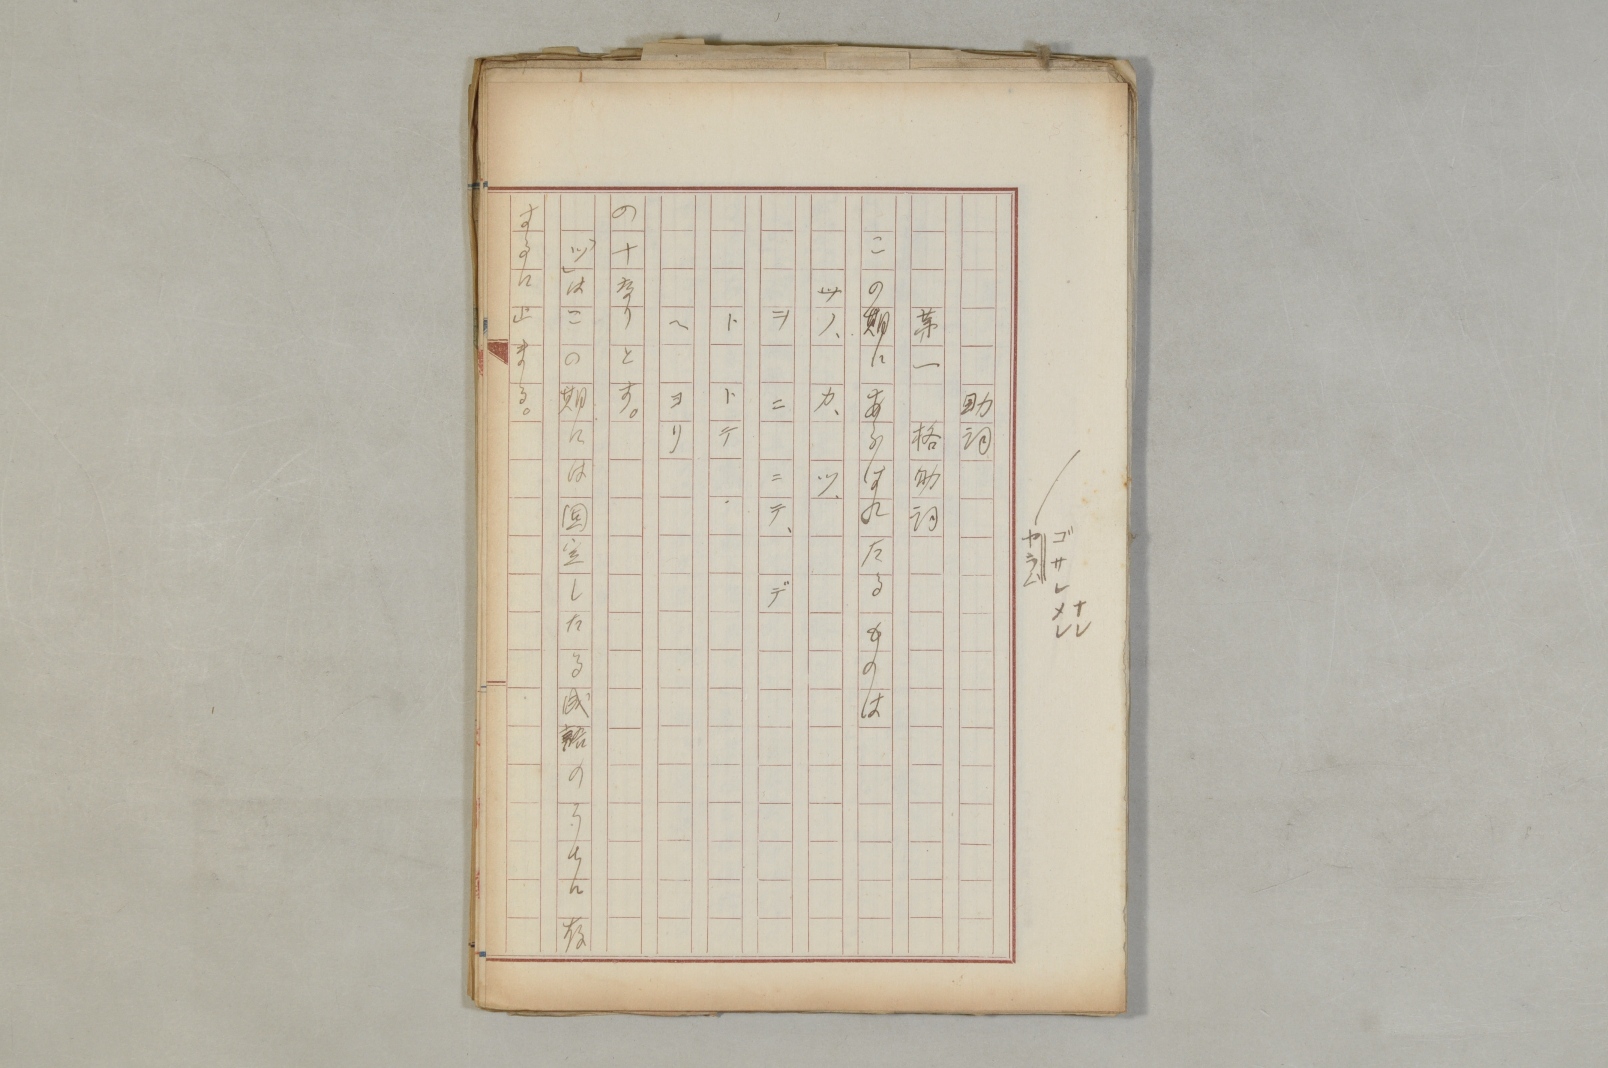 ゴサレ
ナレ
メレ
助詞
第一　格助詞
この期にあらはれたるものは
ノ、ガ、ツ、
ヲ　ニ　ニテ、　デ
ト　トテ
ヘ　ヨリ
の十なりとす。
「ツ」はこの期には固定したる成語のうちに存
するに止まる。